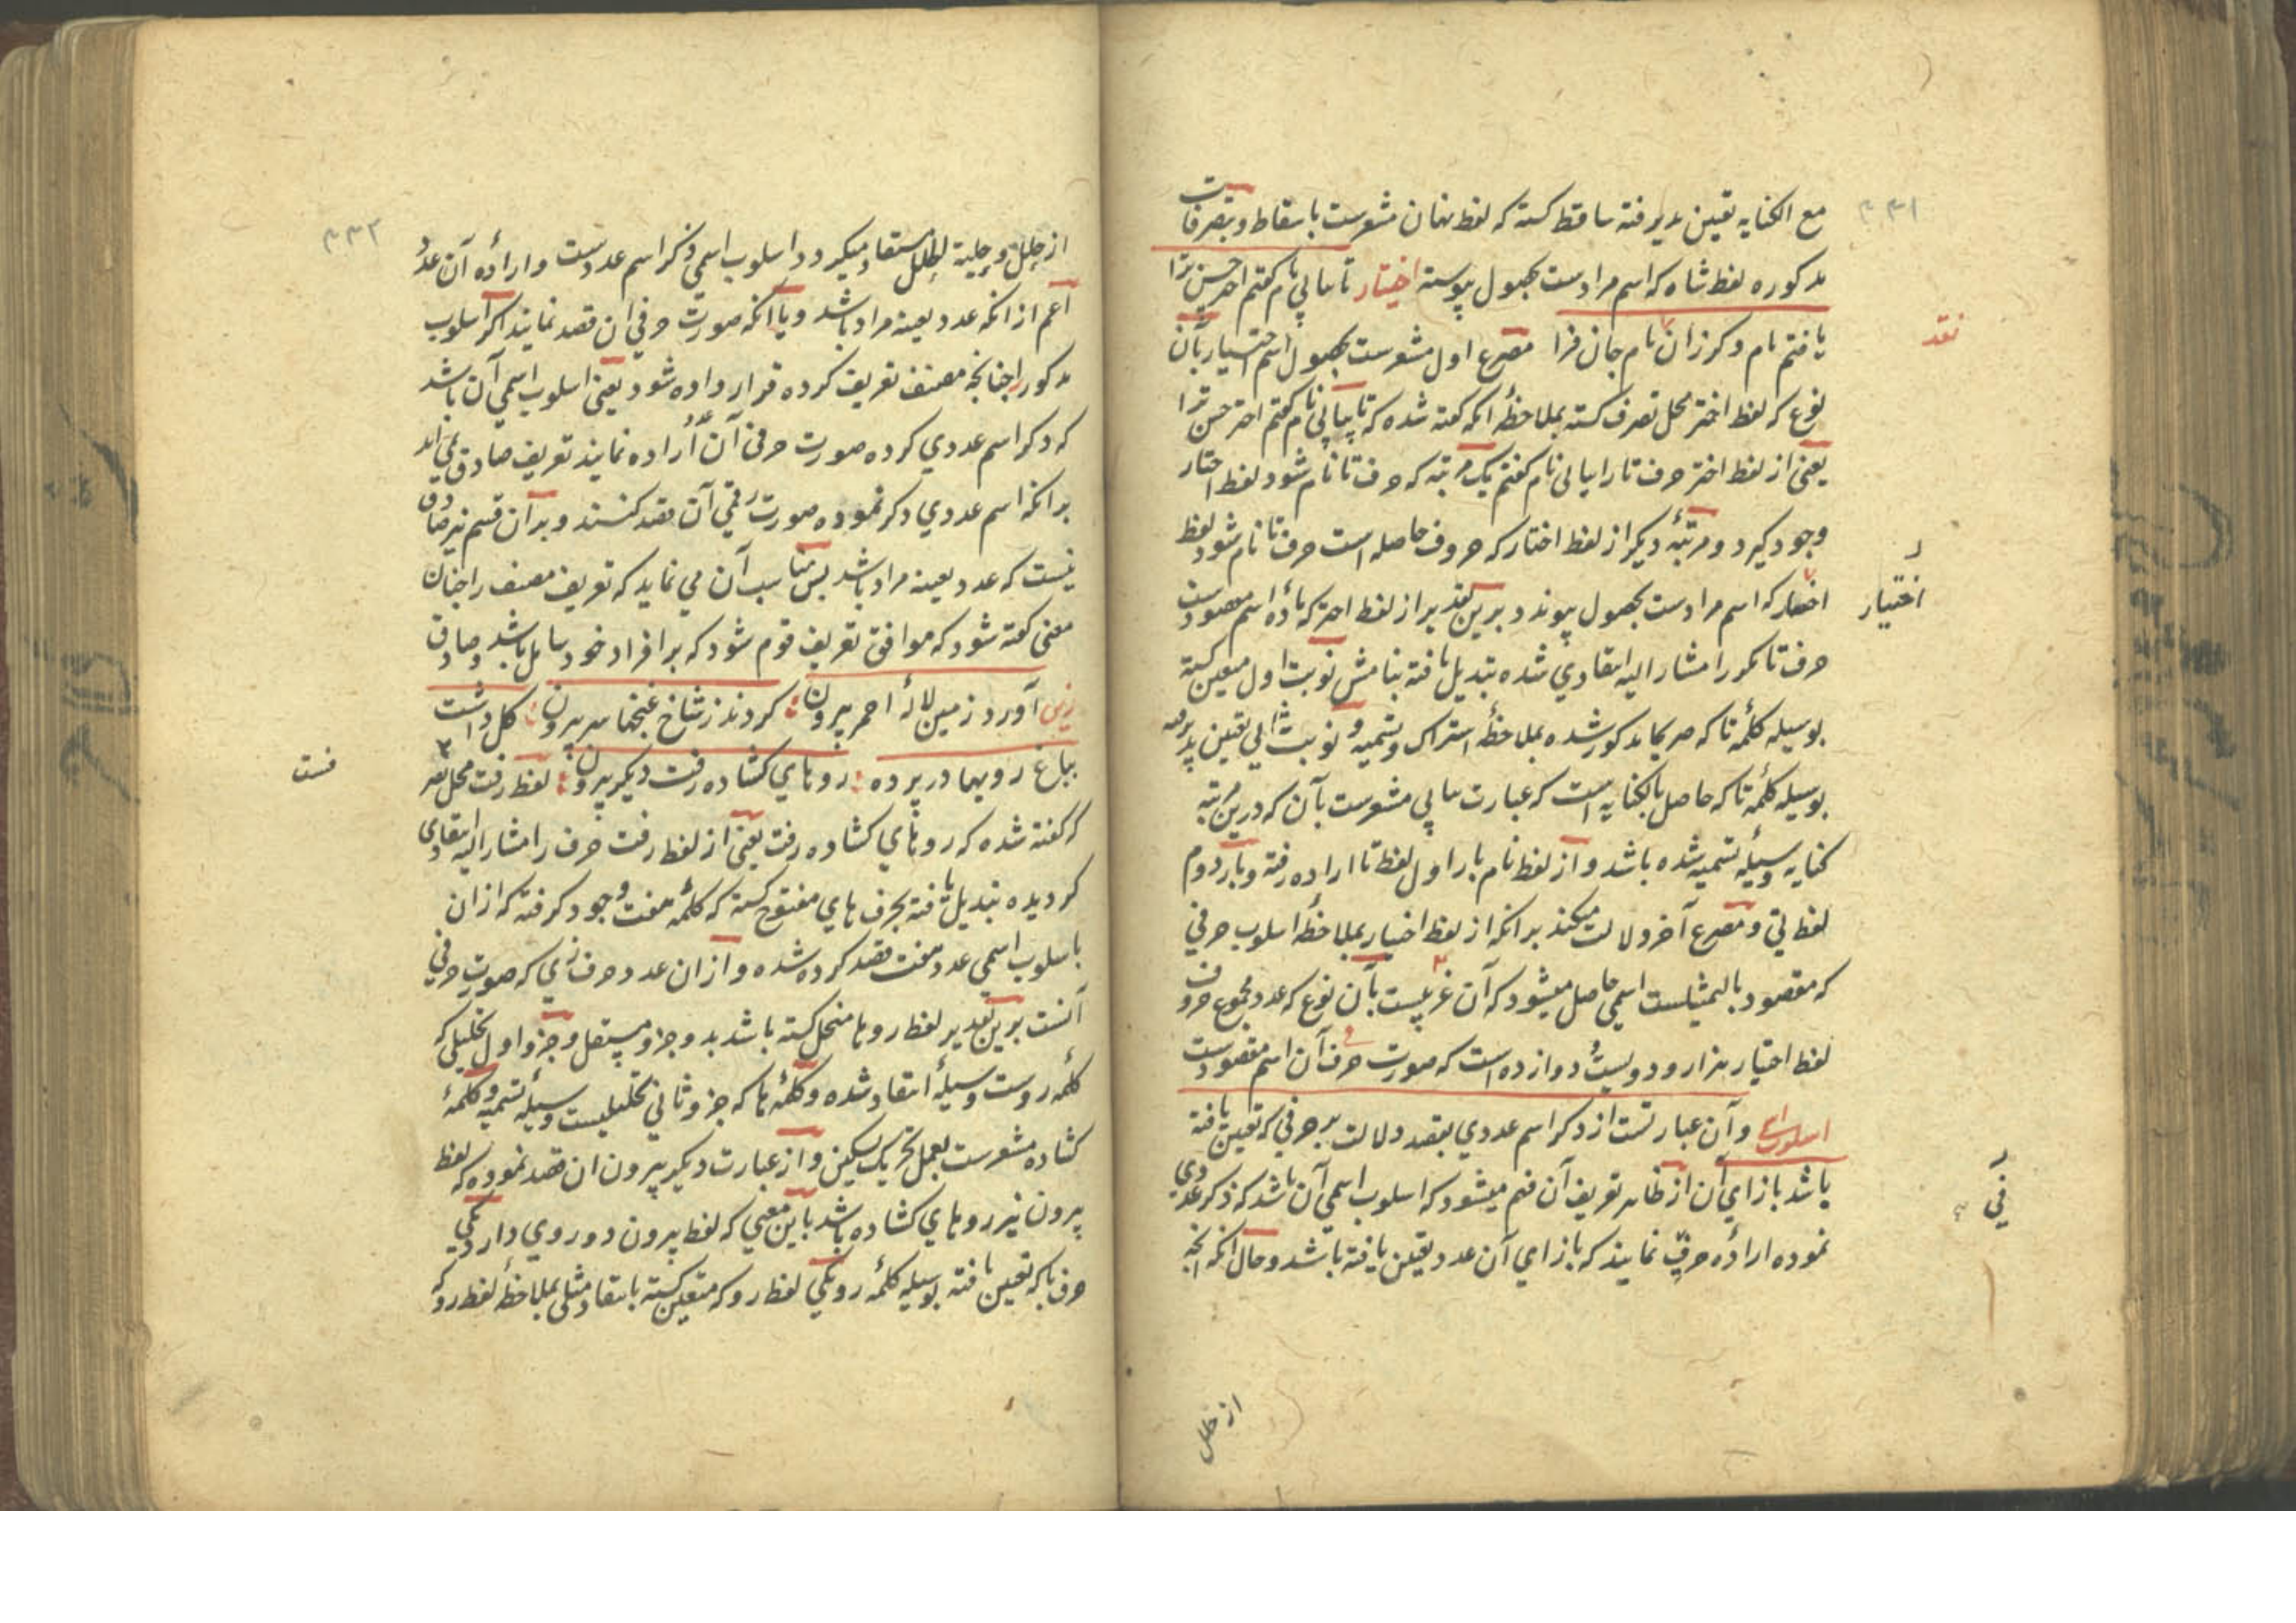 ۳۳۱
مع الکنایه تعین پذیرفته ساقط کسته که لفظ نهان مشعرست باسقاط و بتصرفات
مذکوره لفظ شاه که اسم مرادست بحصول پیوسته اختیار تا بیاپی نام کفتم اختر حسن ترا
یافتم نام دکر زان نام جان فزا مصرع اول مشعرست بحصول اسم اختیار بآن
نقد
نوع که لفظ اختر محل تصرف کسته بملاحظهٔ انکه کفته شده که تا بیاپی نام کفتم اختر حسن ترا
یعنی از لفظ اختر حرف تا را بیاپی نام کفتم یک مرتبه که حرف تا نام شود لفظ اختار
وجود کیرد و مرتبهٔ دیکر از لفظ اختار که حروف حاصله است حرف تا نام شود لفظ
اختیار که اسم مرادست بحصول پیوندد برین تقدیر از لفظ اختر که مادهٔ اسم مقصودست
اختیار
حرف تا مکور را مشار الیه انتقادی شده تبدیل یافته بنامش نوبت اول معین کسته
بوسیله کلمهٔ تا که صریحا مذکور شده بملاحظهٔ اشتراک و تسمیه و نوبت ثانی تعین پذیرفته
بوسیله کلمهٔ تا که حاصل بالکنایه است که عبارت بیاپی مشعرست بآن که درین مرتبه
کنایه وسیلهٔ تسمیه شده باشد و از لفظ نام بار اول لفظ تا اراده رفته و بار دوم
لفظ تی و مصرع آخر دلالت میکند برانکه از لفظ اختیار بملاحظهٔ اسلوب حرفی
که مقصود بالتمثیلست اسمی حاصل میشود که آن غریبست بآن نوع که عدد مجموع حروف
لفظ اختیار هزار و دویست و دوازده است که صورت حرفی آن اسم مقصودست
اسلوب اسمی و آن عبارتست از ذکر اسم عددی بقصد دلالت بر حرفی که تعین یافته
باشد بازای آن از ظاهر تعریف آن فهم میشود که اسلوب اسمی آن باشد که ذکر عددی
فی
نموده ارادهٔ حرفی نمایند که بازای آن عدد تعین یافته باشد و حال انکه انچه
از حلل
۳۳۲
از حلل و حلیة الحلل مستفاد میکردد اسلوب اسمی ذکر اسم عددست و ارادهٔ آن عدد
اعم از انکه عدد بعینه مراد باشد و یا انکه صورت حرفی ان قصد نمایند اکر اسلوب
مذکور را چنانچه مصنف تعریف کرده قرار داده شود یعنی اسلوب اسمی آن باشد
که ذکر اسم عددی کرده صورت حرفی آن عدد اراده نمایند تعریف صادق نمی آید
برانکه اسم عددی ذکر نموده صورت رقمی آن قصد کنند و بر آن قسم نیز صادق
نیست که عدد بعینه مراد باشد پس مناسب آن می نماید که تعریف مصنف را چنان
معنی کفته شود که موافق تعریف قوم شود که بر افراد خود شامل باشد و صادق
زین آورد زمین لالهٔ احمر بیرون کردند ز شاخ غنچها سر بیرون کل داشت
بباغ رویها در پرده روهای کشاده رفت دیکر بیرون لفظ رفت محل
که کفته شده که روهای کشاده رفت یعنی از لفظ رفت حرف را مشار الیه انتقادی
کردیده تبدیل یافته بحرف های مفتوح کسته که کلمهٔ هفت وجود کرفته که از ان
باسلوب اسمی عدد هفت قصد کرده شده و از ان عدد حرف زی که صورت حرفی
آنست برین تقدیر لفظ روها منحل کسته باشد بدو جزو مستقل و جزو اول تحلیلی که
کلمهٔ روست وسیلهٔ انتقاد شده و کلمهٔ ها که جزو ثانی تحلیلیست وسیلهٔ تسمیه و کلمهٔ
کشاده مشعرست بعمل تحریک تسکین و از عبارت دیکر بیرون ان قصد نموده که لفظ
بیرون نیز روهای کشاده باشد باین معنی که لفظ بیرون دو روی دارد یکی
حرف با که تعین یافته بوسیله کلمهٔ رو یکی لفظ رو که متعین کسته بانتقاد مثلی بملاحظهٔ لفظ رو که